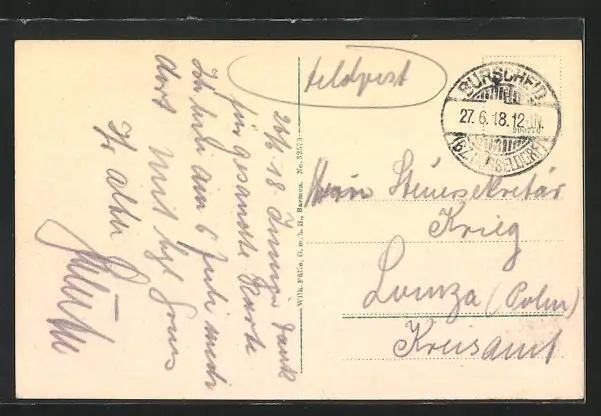 Feldpost
BURSCHEID
27.6.18.12-1N.
(BZ. DÜSSELDORF)
26/6 18 Innigen Dank
für gesandte Karte
Ich bin am 6 Juli nicht
dort Mit bzl Gruss
Ihr alter
Wilh. Fülle, G. m. b. H., Barmen. No. 32573
Herrn Steuersekretär
Krieg
Lomza (Polen)
Kreisamt